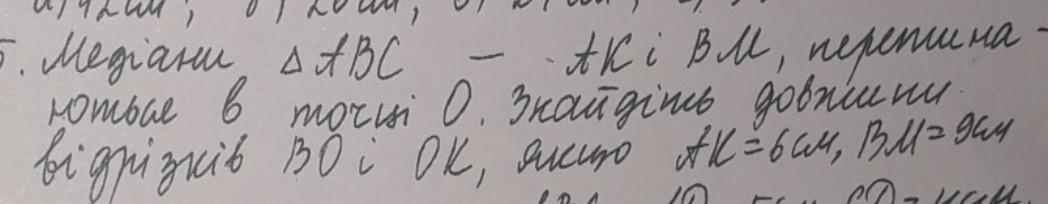 5. Медіани △ABC — AK і BM, перетина-
ються в точці O. Знайдіть довжини
відрізків BO і OK, якщо AK=6см, BM=9см